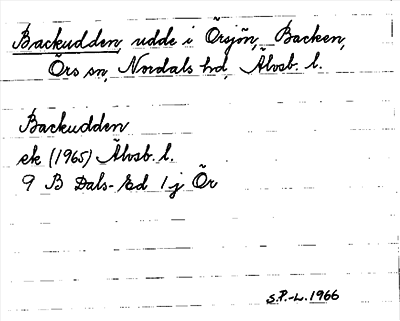 Backudden, udde i Örsjön, Backen,
Örs sn, Nordals hd, Älvsb. l.
Backudden
ek (1965) Älvsb. l.
9 B Dals-Ed 1j Ör
S.P.-L. 1966